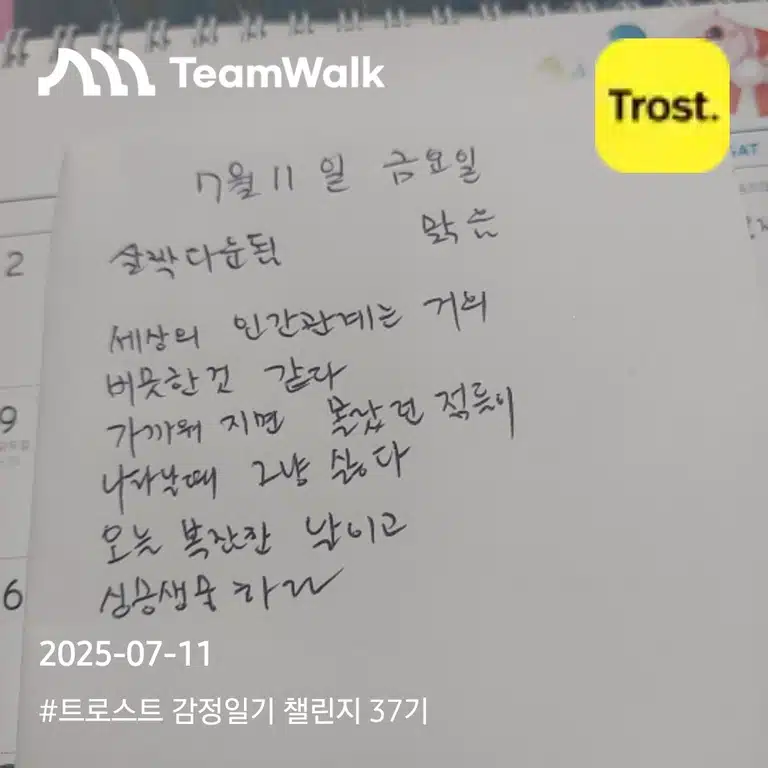 TeamWalk
Trost.
SAT
7월 11일 금요일
살짝다운됨 맑음
2
세상의 인간관계는 거의
비슷한것 같다
가까워 지면 몰랐던 점들이
9
나타날때 그냥 싫다
오늘 복잔한 날이고
6
싱숭생숭 하다
2025-07-11
#트로스트 감정일기 챌린지 37기